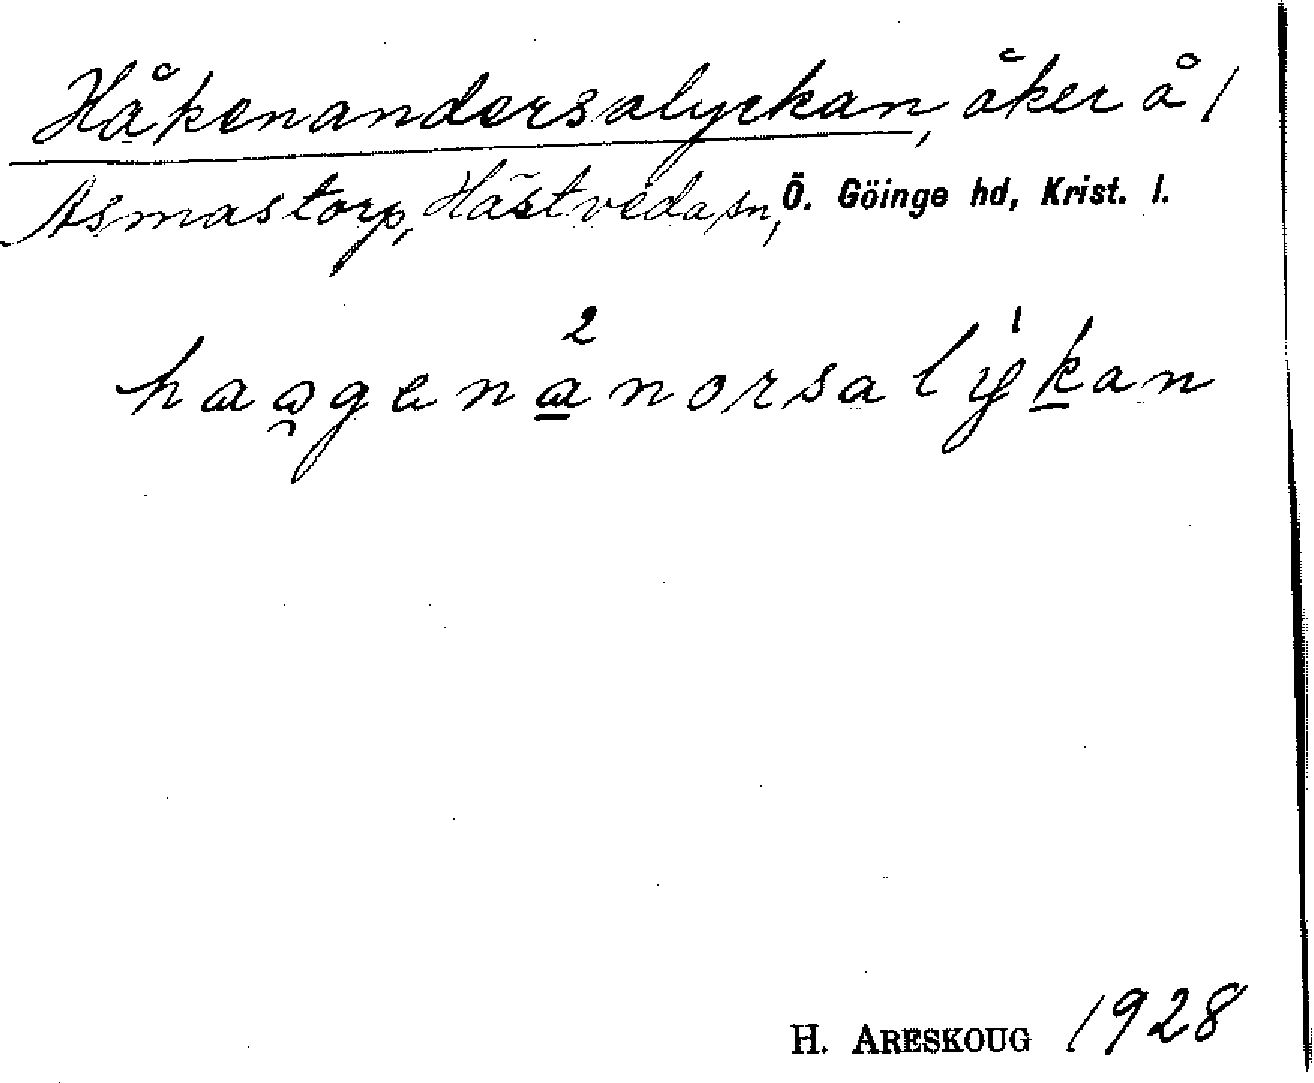 Håkenandersalyckan, åker å 1
Asmastorp, Hästveda sn, Ö. Göinge hd, Krist. l.
haagenanorsalykan
H. ARESKOUG 1928